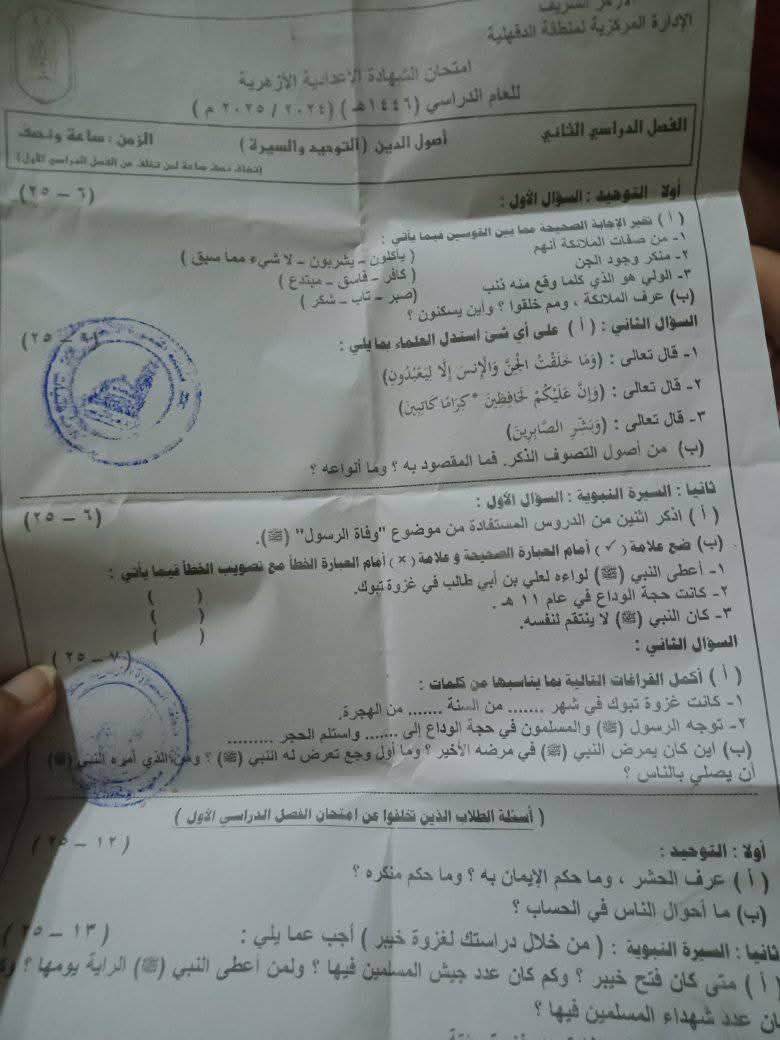 الأزهر الشريف
الإدارة المركزية لمنطقة الدقهلية
امتحان الشهادة الإعدادية الأزهرية
للعام الدراسي (١٤٤٦هـ) (٢٠٢٤ / ٢٠٢٥ م)
الفصل الدراسي الثاني أصول الدين (التوحيد والسيرة) الزمن : ساعة ونصف
(تضاف نصف ساعة لمن تخلف عن الفصل الدراسي الأول)
أولا التوحيد : السؤال الأول : (٦ – ٢٥)
( أ ) تخير الإجابة الصحيحة مما بين القوسين فيما يأتي :
١- من صفات الملائكة أنهم ( يأكلون – يشربون – لا شيء مما سبق )
٢- منكر وجود الجن ( كافر – فاسق – مبتدع )
٣- الولي هو الذي كلما وقع منه ذنب (صبر – تاب – شكر )
(ب) عرف الملائكة ، ومم خلقوا ؟ وأين يسكنون ؟
السؤال الثاني : ( أ ) على أي شئ استدل العلماء بما يلي : (٦ – ٢٥)
١- قال تعالى : (وَمَا خَلَقْتُ الْجِنَّ وَالْإِنسَ إِلَّا لِيَعْبُدُونِ)
٢- قال تعالى : (وَإِنَّ عَلَيْكُمْ لَحَافِظِينَ * كِرَامًا كَاتِبِينَ)
٣- قال تعالى : (وَبَشِّرِ الصَّابِرِينَ)
(ب) من أصول التصوف الذكر. فما المقصود به ؟ وما أنواعه ؟
ثانيا : السيرة النبوية : السؤال الأول : (٦ – ٢٥)
( أ ) اذكر اثنين من الدروس المستفادة من موضوع "وفاة الرسول" (ﷺ).
(ب) ضع علامة (✓) أمام العبارة الصحيحة وعلامة (×) أمام العبارة الخطأ مع تصويب الخطأ فيما يأتي :
١- أعطى النبي (ﷺ) لواءه لعلي بن أبي طالب في غزوة تبوك. ( )
٢- كانت حجة الوداع في عام ١١ هـ . ( )
٣- كان النبي (ﷺ) لا ينتقم لنفسه. ( )
السؤال الثاني : (٧ – ٢٥)
( أ ) أكمل الفراغات التالية بما يناسبها من كلمات :
١- كانت غزوة تبوك في شهر ....... من السنة ....... من الهجرة.
٢- توجه الرسول (ﷺ) والمسلمون في حجة الوداع إلى ....... واستلم الحجر .........
(ب) اين كان يمرض النبي (ﷺ) في مرضه الأخير ؟ وما أول وجع تعرض له النبي (ﷺ) ؟ ومن الذي أمره النبي (ﷺ)
أن يصلي بالناس ؟
( أسئلة الطلاب الذين تخلفوا عن امتحان الفصل الدراسي الأول )
أولا : التوحيد : (١٢ – ٢٥)
( أ ) عرف الحشر ، وما حكم الإيمان به ؟ وما حكم منكره ؟
(ب) ما أحوال الناس في الحساب ؟
ثانيا : السيرة النبوية : ( من خلال دراستك لغزوة خيبر ) أجب عما يلي : (١٣ – ٢٥)
( أ ) متى كان فتح خيبر ؟ وكم كان عدد جيش المسلمين فيها ؟ ولمن أعطى النبي (ﷺ) الراية يومها ؟
كان عدد شهداء المسلمين فيها ؟